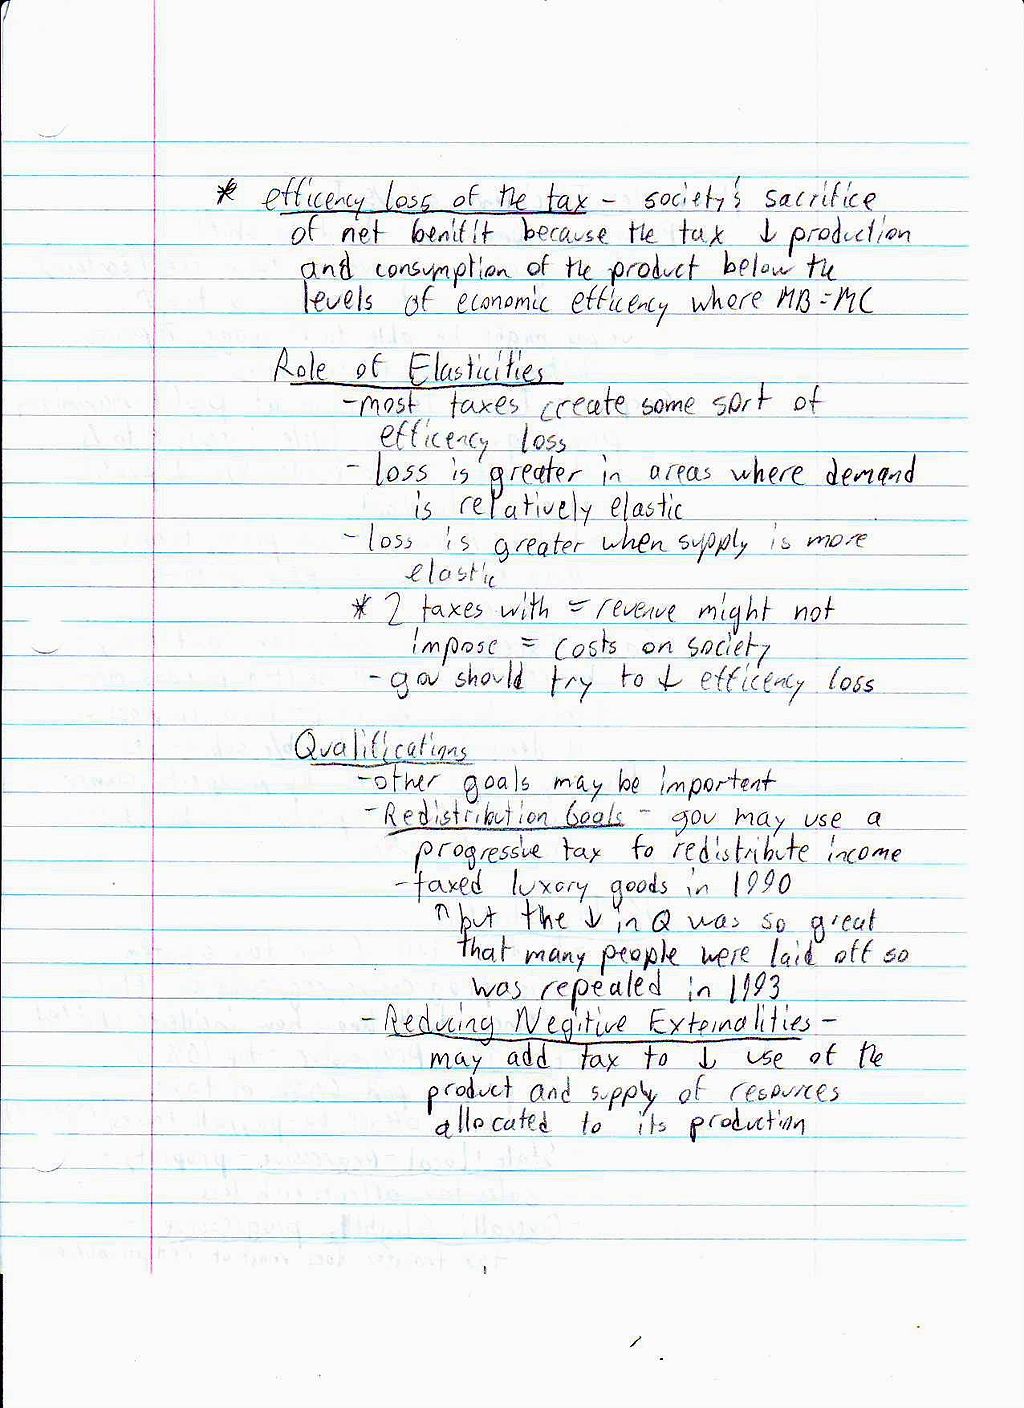 * efficency loss of the tax - society's sacrifice
of net benifit because the tax ↓ production
and consumption of the product below the
levels of economic efficency where MB=MC
Role of Elasticities
-most taxes create some sort of
efficency loss
- loss is greater in areas where demand
is relatively elastic
- loss is greater when supply is more
elastic
* 2 taxes with = revenue might not
impose = costs on society
- gov should try to ↓ efficency loss
Qualifications
-other goals may be important
- Redistribution Goals - gov may use a
progressive tax to redistribute income
-taxed luxory goods in 1990
↑ but the ↓ in Q was so great
that many people were laid off so
was repealed in 1993
- Reducing Negitive Externalities -
may add tax to ↓ use of the
product and supply of resources
allocated to its production